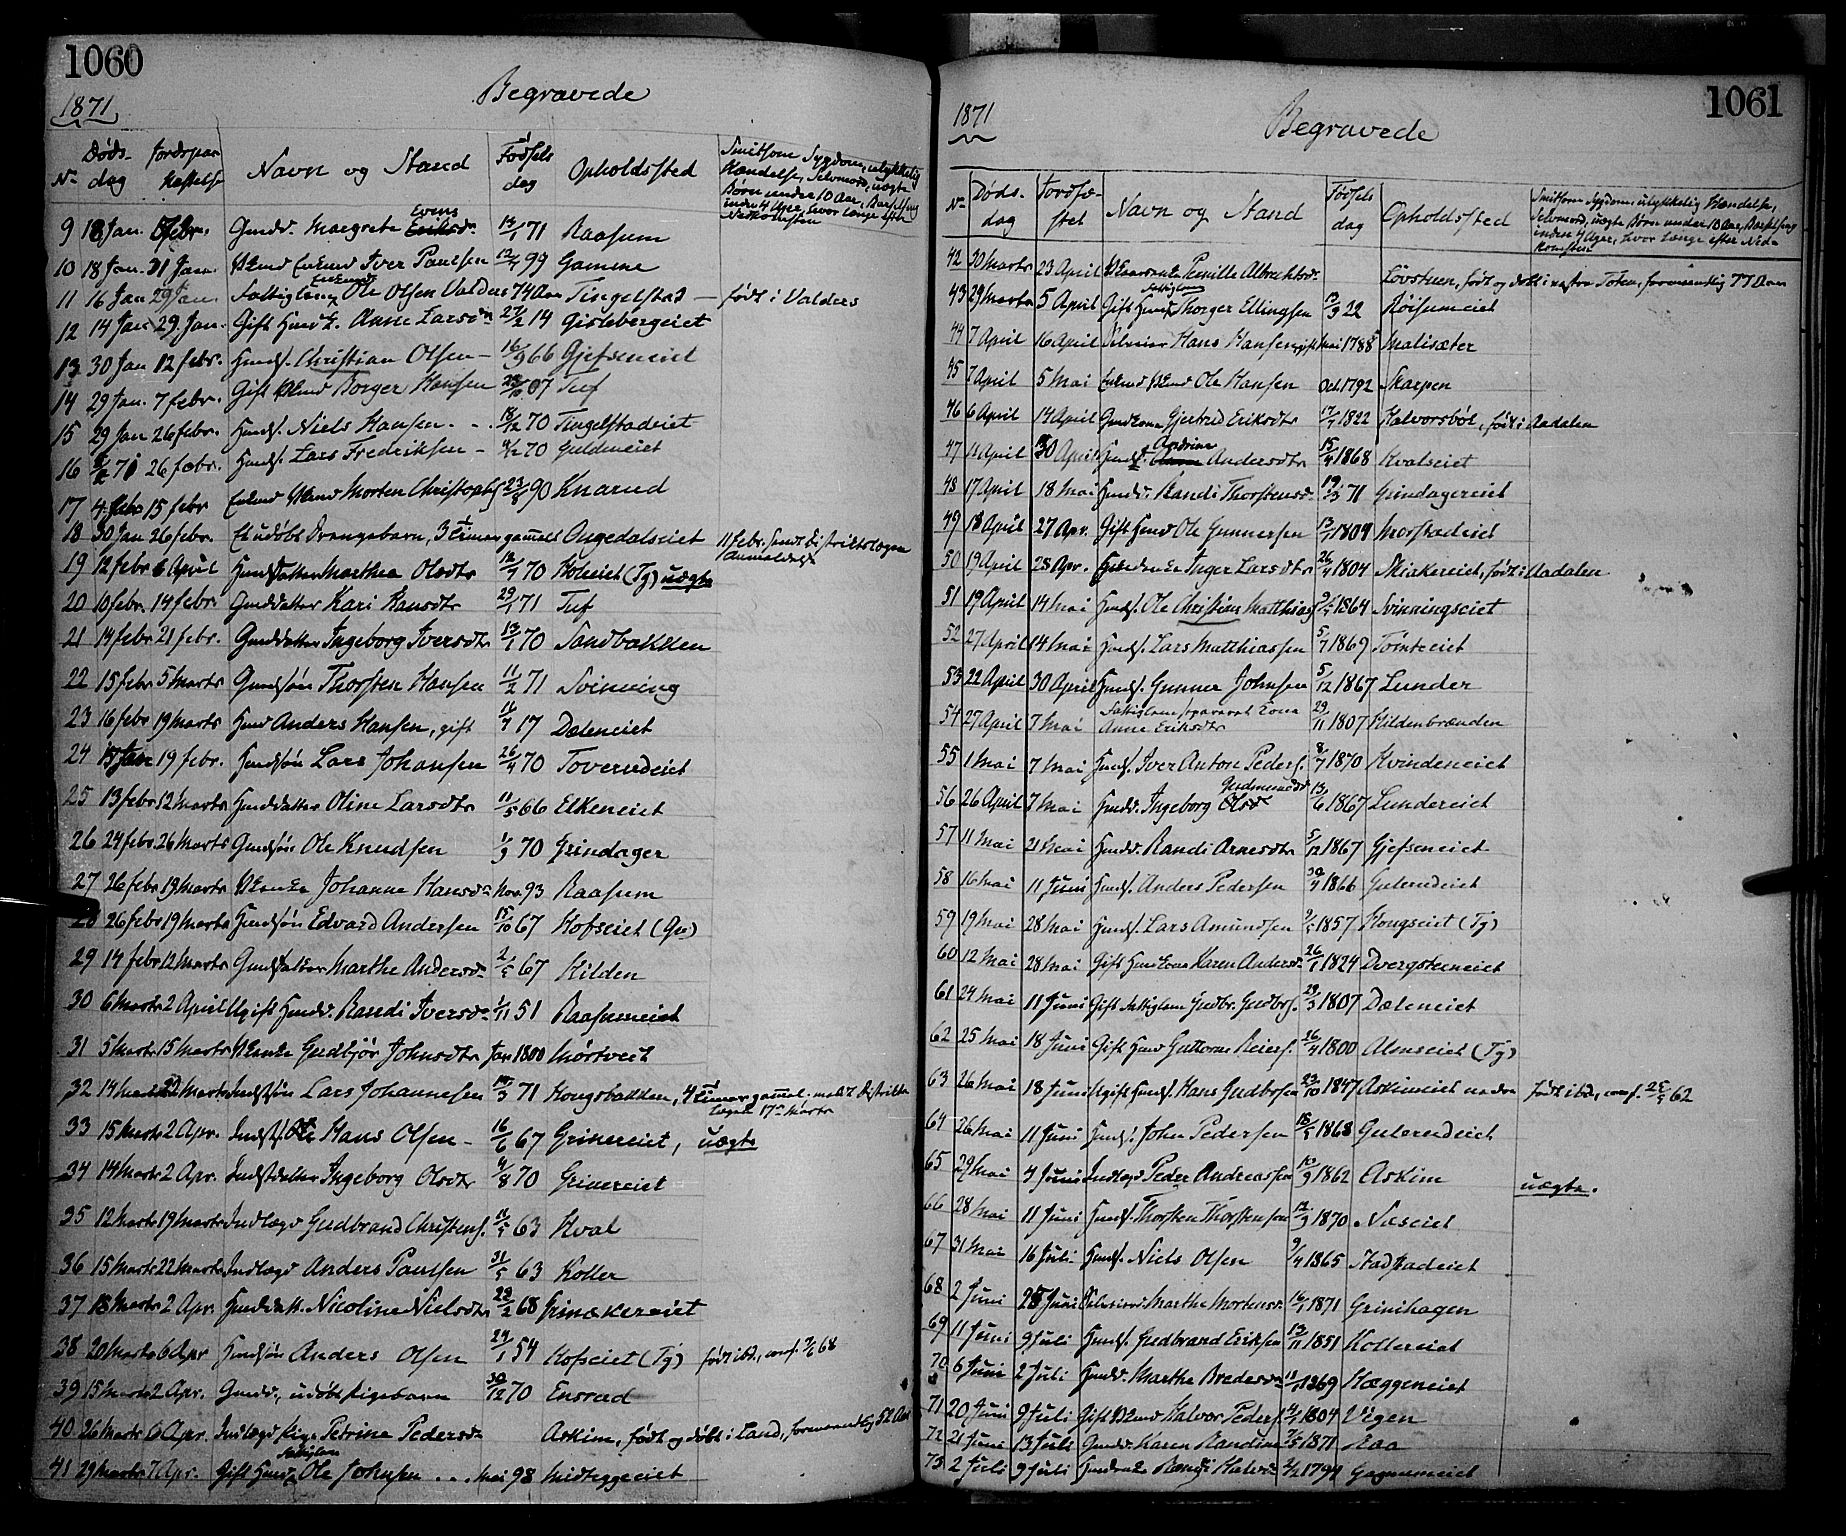 1060
1871
Begravede
No Døds-dag Jordspaa-kastelse Navn og Stand Fødsels dag Opholdssted Smitsom Sygdom, ulykkelig Hændelse, Selvmord, uægte Børn under 10 Aar,
9 18 Jan. Gmdd. Margrethe Evens 13/1 71 Raasum
10 18 Jan. 31 Jan. Enkmd Iver Paulsen 99 Gamme
11 16 Jan 29 Jan. Fattiglem Enkemd Ole Olsen Valders 74 Aar Tingelstad – født i Valders
12 14 Jan 29. Jan. Gift Hmdk. Anne Larsdr 27/2 14 Gislebergeiet
13 30 Jan 12 febr. Hmds. Christian Olsen – 16/9 66 Gjefseneiet
14 29 Jan. 7 febr. Gift Borger Hansen 07 Tuf
15 29 Jan 26 febr. Hmds. Niels Hansen 18/12 70 Tingelstadeiet
16 71 26 febr. Hmds. Lars Fredriksen – 70 Guldeneiet
17 4 febr 15 febr Morten Christophs 23/8 90 Knarud
18 30 Jan 26 febr. Et udøbt Drengebarn, 3 Timer gammelt Ongedalseiet 11 febr. sendt Distriktslægen Anmeldelse
19 12 febr 6 April Hmdsdatter Marthea Olsdtr 70 Hoheiet (Tg) uægte
20 10 febr. 14 febr. Gmddatter Kari Hansdtr 29/1 71 Tuf
21 14 febr 21 febr. Gmddatter Ingeborg Iversdtr 13/7 70 Sandbakken
22 15 febr 5 Marts Gmdsøn Thorsten Hansen 11/2 71 Svinning
23 16 febr 19 Marts Hmd Anders Hansen, gift 17 Dæleneiet
24 15 Jan 19 febr. Hmdsøn Lars Johansen 26/4 70 Toverudeiet
25 13 febr 12 Marts Hmddatter Oline Larsdtr 11/5 66 Elkeneiet
26 24 febr. 26 Marts Gmdsøn Ole Knudsen 1/9 70 Grindager
27 26 febr 19 Marts Johanne Hansdr Nov 93 Raasum
28 26 febr 19 Marts Hmdsøn Edvard Andersen 15/10 67 Hofseiet (Gr)
29 14 febr 12 Marts Gmddatter Marthe Andersdr 2/5 67 Kilden
30 6 Marts 2 April Ugift Hmdd. Randi Iversdr 1/11 51 Raasumeiet
31 5 Marts 15 Marts Gudbjør Johnsdtr Jan 1800 Mørtvedt
32 14 Marts 22 Marts Indstsøn Lars Johannesen 14/3 71 Kongsbakken, 4 Timer gammel. meldt Distriktslægen 17de Marts
33 15 Marts 2 Apr. Hans Olsen – 16/6 67 Grinereiet, uægte
34 14 Marts 2 Apr. Indstdatter Ingeborg Olsdtr 70 Grinereiet
35 12 Marts 19 Marts Indlagd Gudbrand Christens. 63 Hval
36 15 Marts 22 Marts Indlagd Anders Paulsen 31/5 63 Koller
37 18 Marts 2 Apr. Hmddatt. Nicoline Nielsdtr 68 Grinakereiet
38 20 Marts 6 Apr Hmdsøn Anders Olsen 54 Hofseiet (Tg) født ibd., conf. 68
39 15 Marts 2 Apr. Gmdd., udøbt Pigebarn 30/12 70 Ensrud
40 26 Marts 6 Apr. Indlagd Pige Petrine Pedersdr Askim, født og døbt i Land, formentlig 52 Aar
41 29 Marts 7 Apr. Gift Fattiglem Ole Johnsen Mai 98 Midtyggeeiet
1061
1871
Begravede
No Døds-dag Jordfæ-stet Navn og Stand Fødsels dag Opholdssted Smitsom Sygdom, ulykkelig Hændelse, Selvmord, uægte Børn under 10 Aar,
42 30 Marts 23 April Pernille Albrektsdr. Lovstuen, født og døbt i østre Toten, formentlig 77 Aar
43 29 Marts 5 April Gift Fattiglem Thorger Ellingsen 22 Røisumeiet
44 7 April 16 April Hans Hansen gift Mai 1788 Malisæter
45 7 April 5 Mai Ole Hansen Oct. 1792 Skarpen
46 6 April 14 April Gmdkone Gjertrud Eriksdtr 1822 Halvorsbøl, født i Aadalen
47 11 April 30 April Andrine Andersdtr 15/4 1868 Hvalseiet
48 17 April 18 Mai Hmdd. Randi Thorstensd. 19/3 71 Grindagereiet
49 18 April 27 Apr. Gift Hmd Ole Gunnersen 1809 Morstadeiet
50 19 April 28 Apr. Inger Larsdtr 26/4 1804 Skiakereiet, født i Aadalen
51 19 April 14 Mai Hmds. Ole Christian Matthias 1864 Svinningseiet
52 27 April 14 Mai Hmds. Lars Matthiassen 5/7 1869 Tømteeiet
53 22 April 30 April Hmds. Gunner Johnsen 5/12 1867 Lunder
54 27 April 7 Mai Fattiglem, separeret Kone Anne Eriksdtr 29/11 1807 Kildenbrænden
55 1 Mai 7 Mai Hmds. Iver Anton Peders. 8/7 1870 Kvindeneiet
56 26 April 7 Mai Hmdd. Ingeborg Gudmundsd 13/6 1867 Lundereiet
57 11 Mai 21 Mai Hmdd. Randi Arnesdtr 5/12 1867 Gjefseneiet
58 16 Mai 11 Juni Hmds. Anders Pedersen 30/4 1866 Gulerudeiet
59 19 Mai 28 Mai Hmds. Lars Amundsen 1857 Kongseiet (Tg)
60 12 Mai 28 Mai Gift Hmdkone Karen Andersdr 26/1 1824 Dvergsteneiet
61 24 Mai 11 Juni Gift Fattiglem Gudbr. Gudbrs. 29/3 1807 Dæleneiet
62 25 Mai 18 Juni Gift Hmd Guttorm Reiers. 26/4 1800 Almseiet (Tg)
63 26 Mai 18 Juni Ugift Hmds. Hans Gudbrsen 23/10 1847 Askimeiet nedre født ibd., conf. 62
64 26 Mai 11 Juni Hmds. John Pedersen 15/5 1868 Gulerudeiet
65 29 Mai 4 Juni Indlagd Peder Andreassen 10/9 1862 Askim uægte.
66 28 Mai 11 Juni Hmds. Thorsten Thorstensen 12/9 1870 Næseiet
67 31 Mai 16 Juli. Hmds. Niels Olsen 9/4 1865 Stadstadeiet
68 2 Juni 25 Juni Marthe Mortensdr 1871 Grinihagen
69 11 Juni 9 Juli Hmds. Gudbrand Eriksen 13/11 1851 Kollereiet
70 6 Juni 2 Juli Hmdd. Marthe Bredesdr 1869 Hæggeneiet
71 20 Juni 9 Juli Gift Halvor Peders. 1804 Vigen
72 21 Juni 13 Juli Gmdd. Karen Randine 1871 Raa
73 2 Juli 9 Juli Randi Halvdr 1794 Gagnumeiet